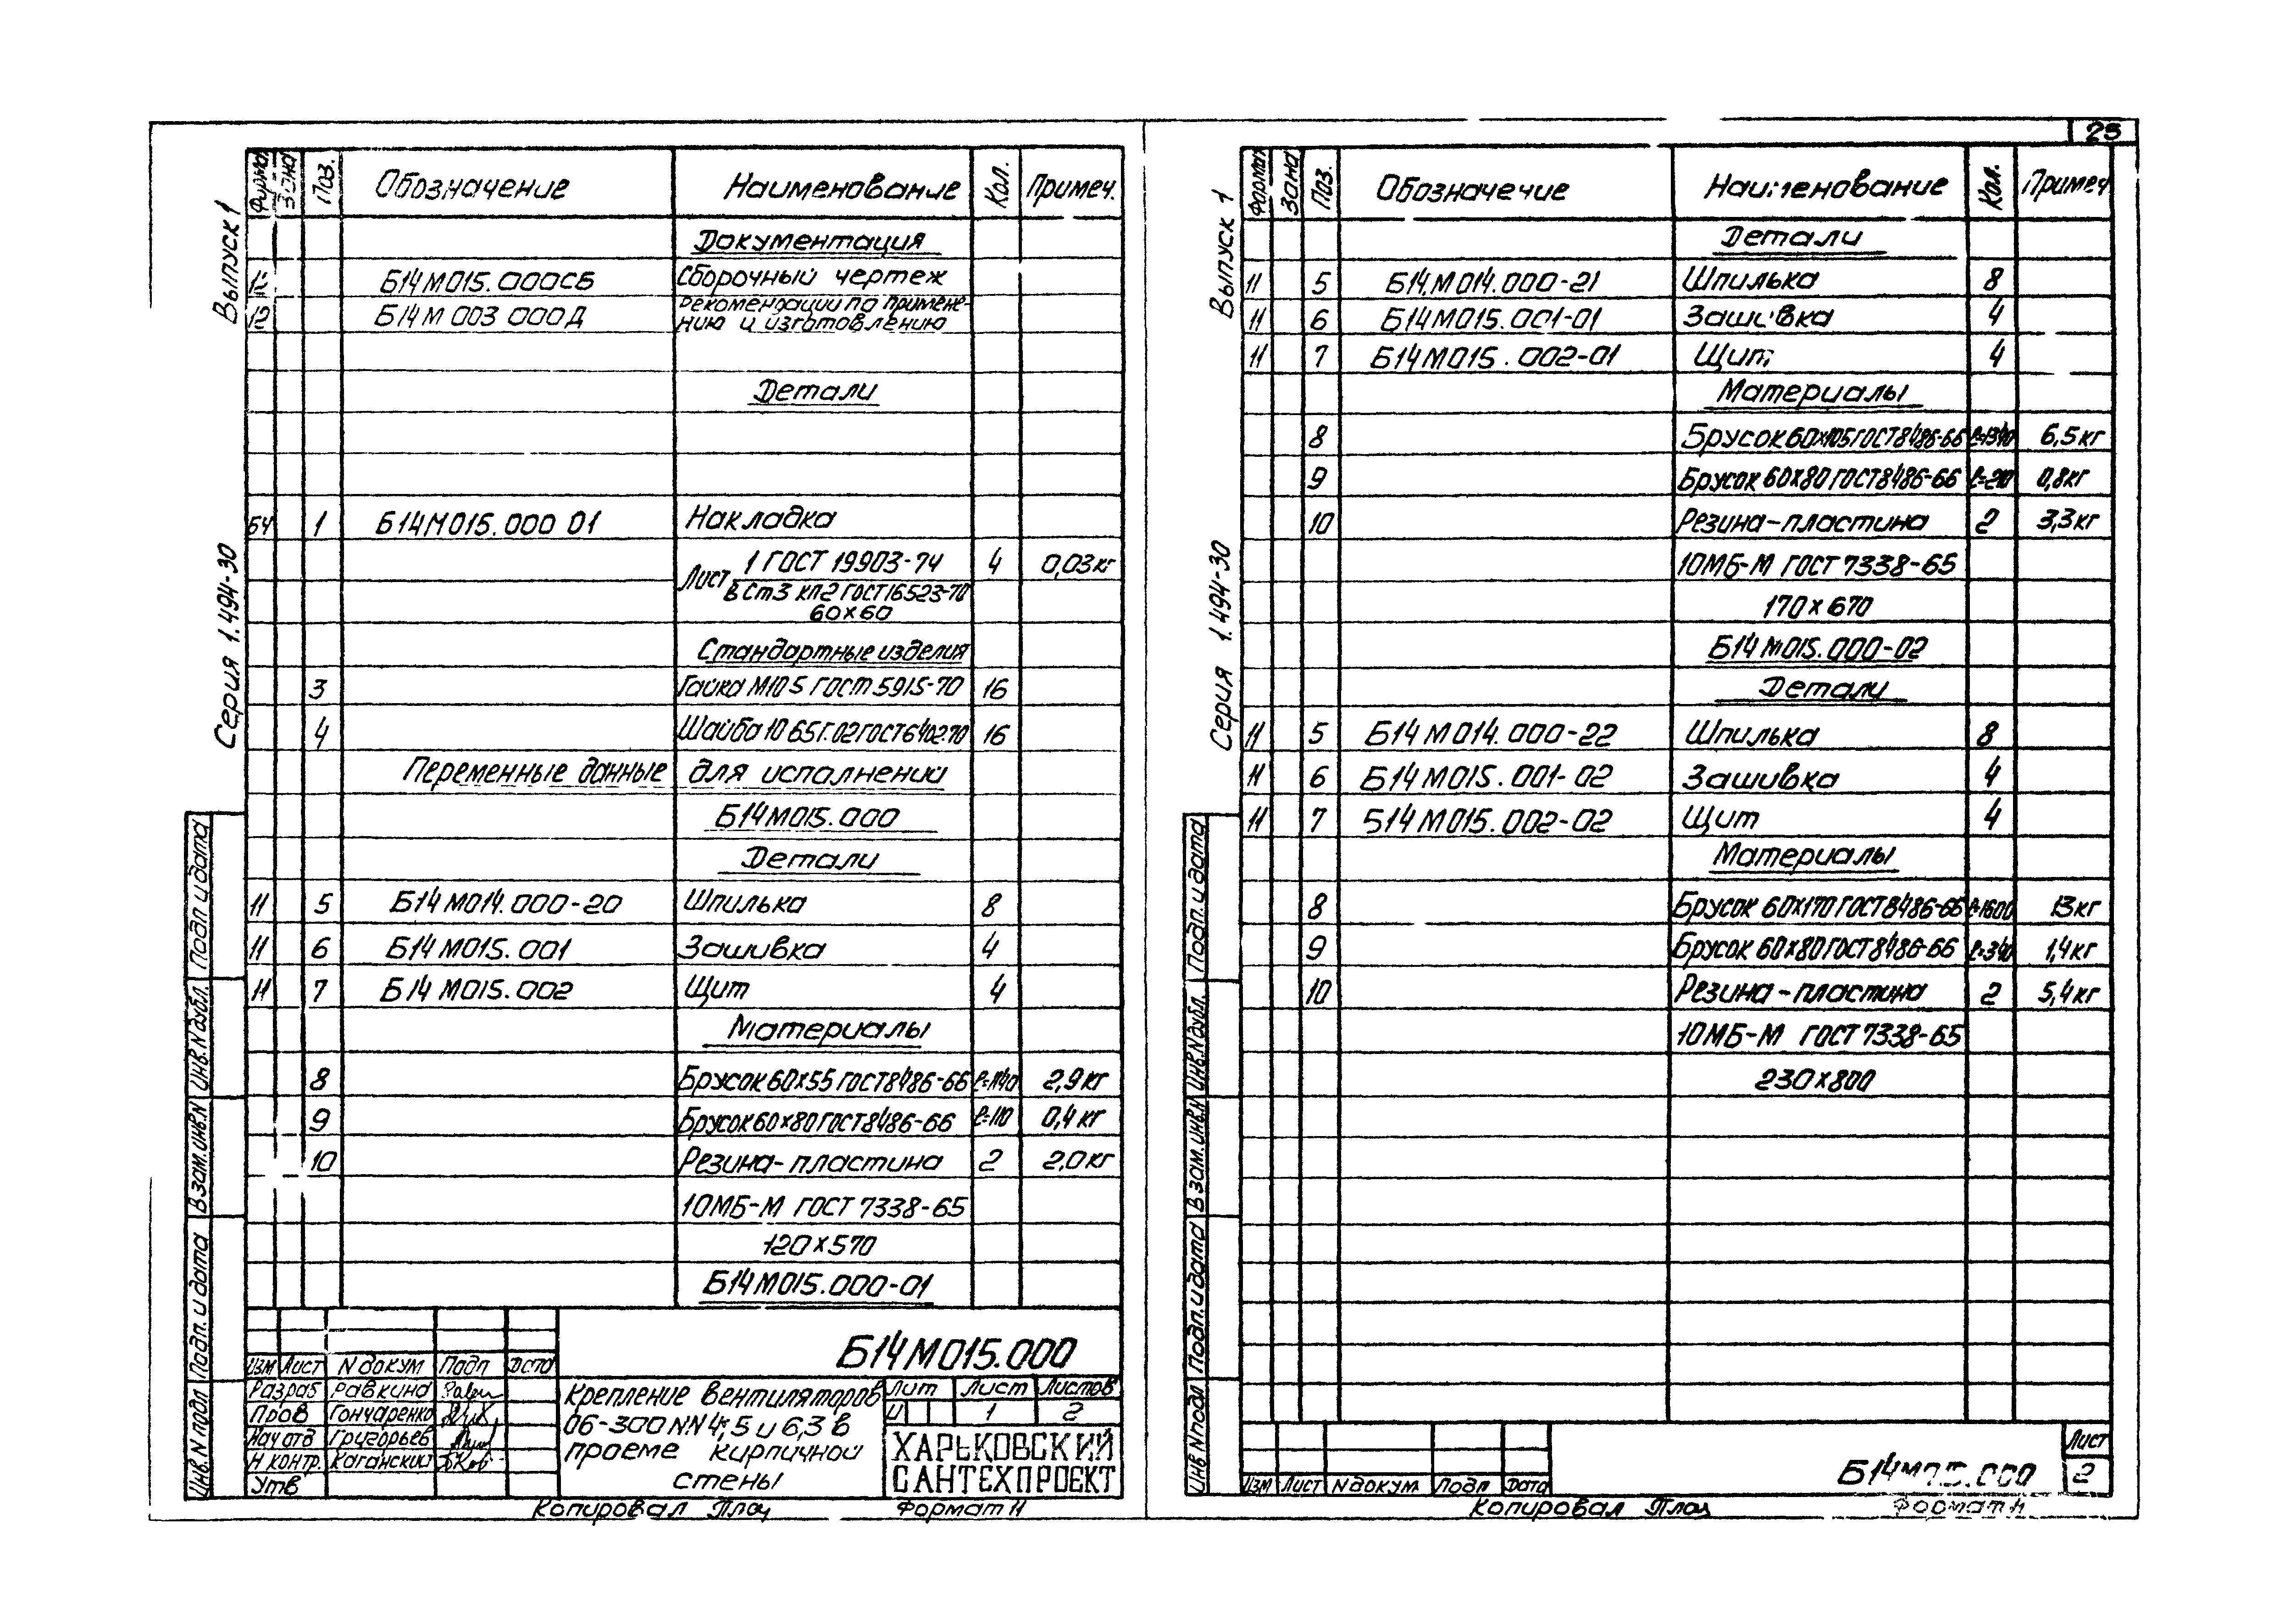 23
Выпуск 1
Серия 1.494-30
Формат Зона Поз. Обозначение Наименование Кол. Примеч.
Документация
12 Б14М015.000СБ Сборочный чертеж
12 Б14М 003 000Д Рекомендации по примене-
нию и изготовлению
Детали
БЧ 1 Б14М015.000 01 Накладка
Лист 1 ГОСТ 19903-74 4 0,03кг
В Ст3 кп2 ГОСТ 16523-70
60×60
Стандартные изделия
3 Гайка М10 5 ГОСТ 5915-70 16
4 Шайба 10 65Г.02 ГОСТ 6402-70 16
Переменные данные для исполнений
Б14М015.000
Детали
11 5 Б14М014.000-20 Шпилька 8
11 6 Б14М015.001 Зашивка 4
11 7 Б14М015.002 Щит 4
Материалы
8 Брусок 60×55 ГОСТ 8486-66 ℓ=1140 2,9кг
9 Брусок 60×80 ГОСТ 8486-66 ℓ=110 0,4кг
10 Резина-пластина 2 2,0кг
10МБ-М ГОСТ 7338-65
120×570
Б14М015.000-01
Подп. и дата
Инв.N дубл.
Взам.инв.N
Подп. и дата
Инв.N подл
Б14М015.000
Изм Лист N докум Подп Дата
Разраб Равкина
Пров Гончаренко
Нач отд Григорьев
Н контр. Каганский
Утв
Крепление вентиляторов
06-300 NN 4; 5 и 6,3 в
проеме кирпичной
стены
Лит Лист Листов
И 1 2
ХАРЬКОВСКИЙ
САНТЕХПРОЕКТ
Копировал Формат 11
Выпуск 1
Серия 1.494-30
Формат Зона Поз. Обозначение Наименование Кол. Примеч
Детали
11 5 Б14М014.000-21 Шпилька 8
11 6 Б14М015.001-01 Зашивка 4
11 7 Б14М015.002-01 Щит 4
Материалы
8 Брусок 60×105 ГОСТ 8486-66 ℓ=1340 6,5кг
9 Брусок 60×80 ГОСТ 8486-66 ℓ=210 0,8кг
10 Резина-пластина 2 3,3кг
10МБ-М ГОСТ 7338-65
170×670
Б14М015.000-02
Детали
11 5 Б14М014.000-22 Шпилька 8
11 6 Б14М015.001-02 Зашивка 4
11 7 Б14М015.002-02 Щит 4
Материалы
8 Брусок 60×170 ГОСТ 8486-66 ℓ=1600 13кг
9 Брусок 60×80 ГОСТ 8486-66 ℓ=340 1,4кг
10 Резина-пластина 2 5,4кг
10МБ-М ГОСТ 7338-65
230×800
Подп. и дата
Инв.N дубл.
Взам.инв.N
Подп. и дата
Инв.N подл
Изм Лист N докум Подп Дата
Б14М015.000
Лист
2
Копировал Формат 11